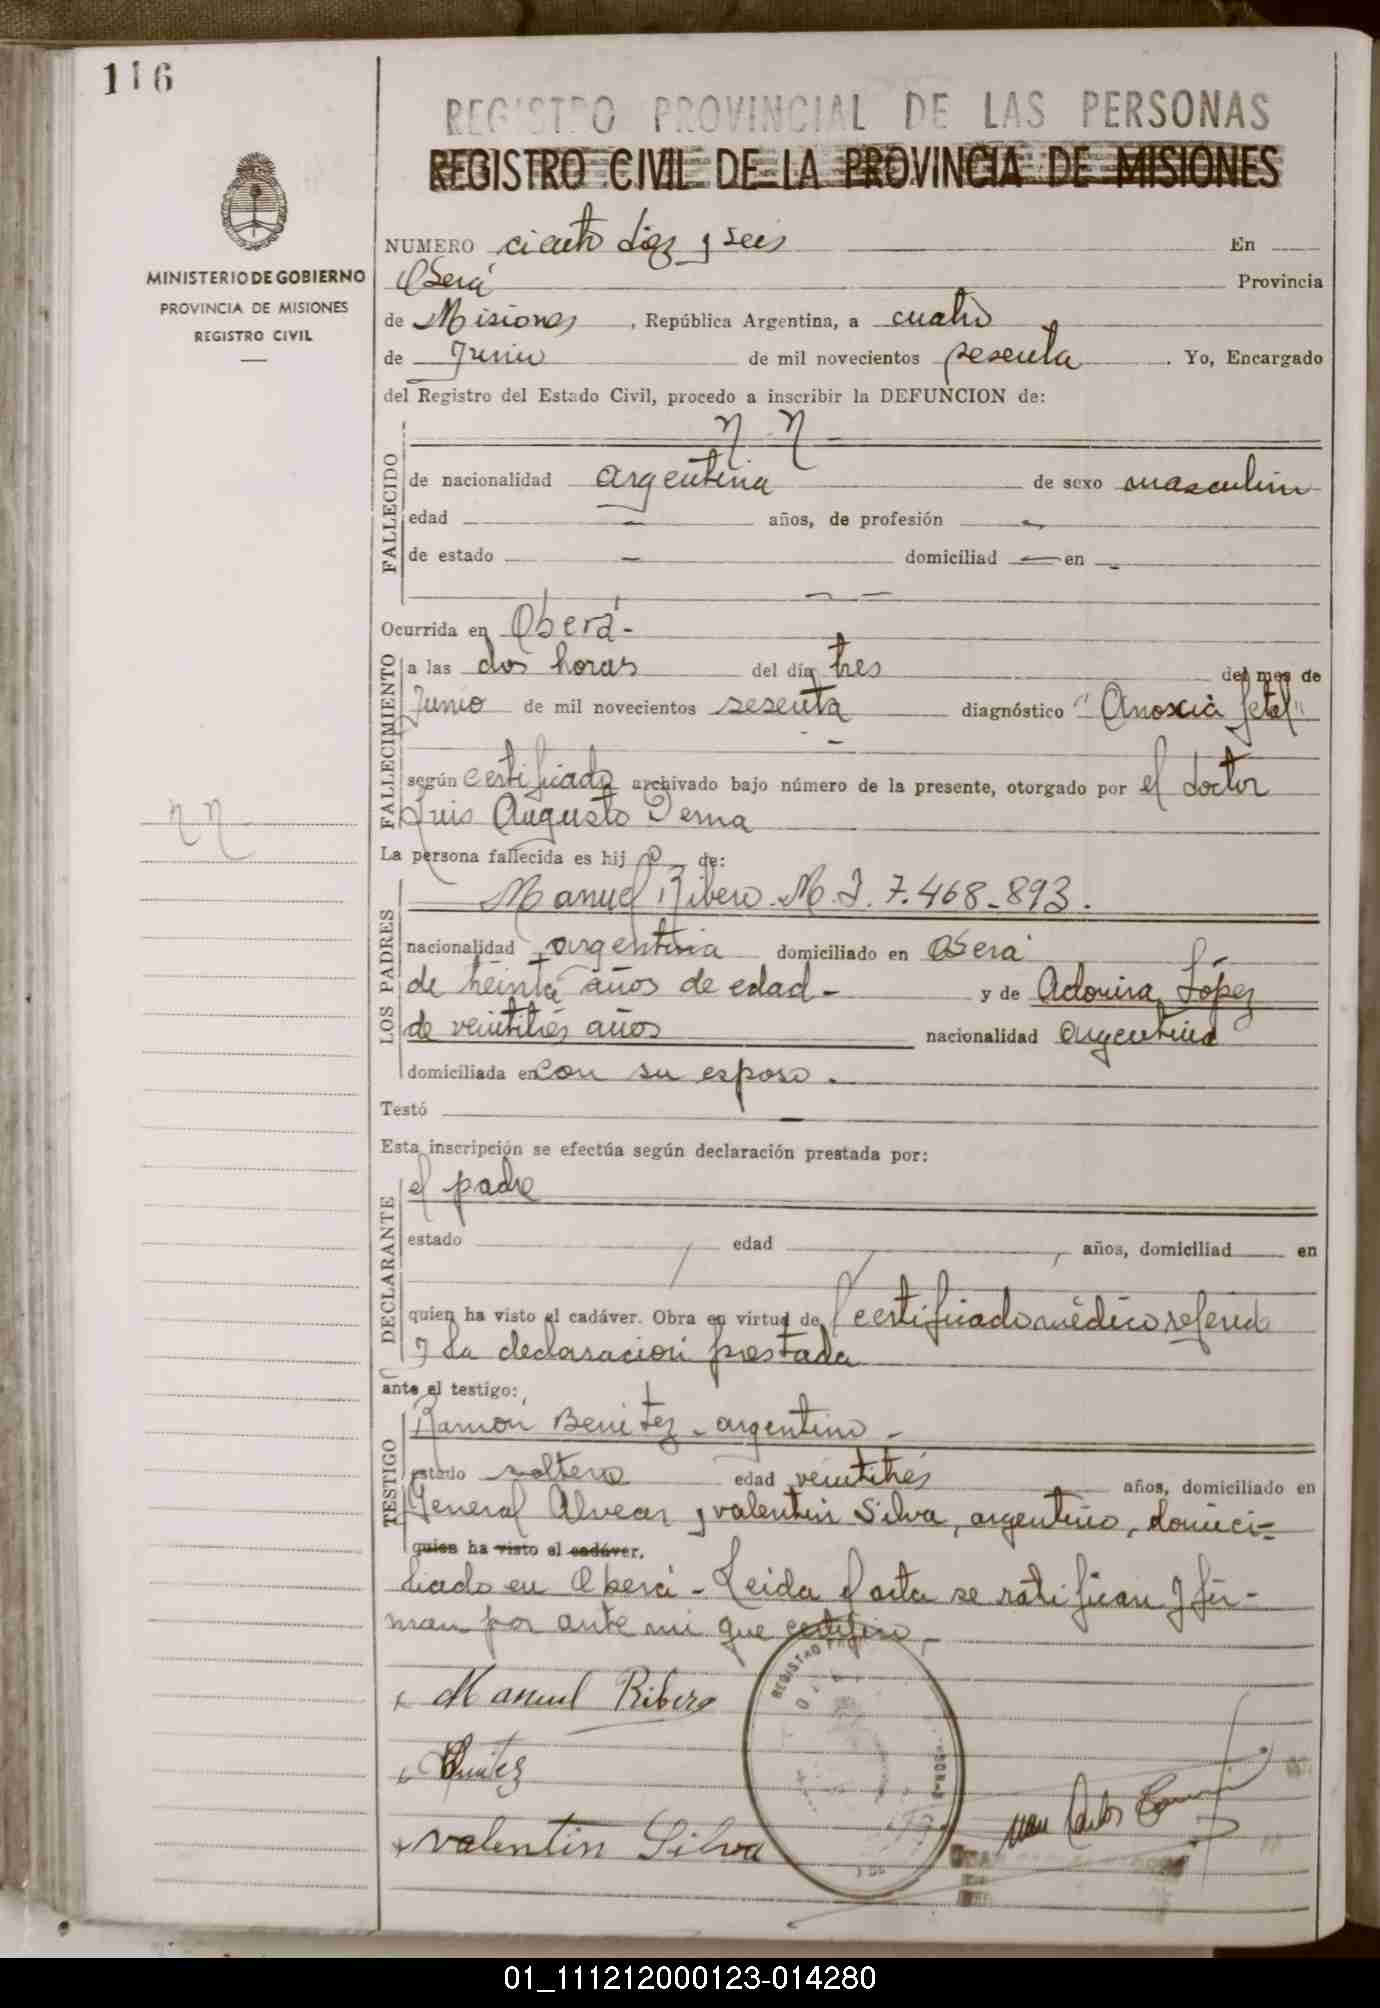 116
MINISTERIO DE GOBIERNO
PROVINCIA DE MISIONES
REGISTRO CIVIL
REGISTRO PROVINCIAL DE LAS PERSONAS
REGISTRO CIVIL DE LA PROVINCIA DE MISIONES
NUMERO ciento diez y seis En
Oberá Provincia
de Misiones, República Argentina, a cuatro
de Junio de mil novecientos sesenta. Yo, Encargado
del Registro del Estado Civil, procedo a inscribir la DEFUNCION de:
N N -
FALLECIDO
de nacionalidad argentina de sexo masculino
edad - años, de profesión -
de estado - domiciliad - en -
- -
Ocurrida en Oberá -
FALLECIMIENTO
a las dos horas del día tres del mes de
Junio de mil novecientos sesenta diagnóstico "Anoxia fetal"
según certificado archivado bajo número de la presente, otorgado por el doctor
Luis Augusto Derna
N N
La persona fallecida es hijo de:
LOS PADRES
Manuel Ribero. M. I. 7.468-893.
nacionalidad argentina domiciliado en Oberá
de treinta años de edad - y de Adorira López
de veintitrés años nacionalidad argentina
domiciliada en con su esposo.
Testó -
Esta inscripción se efectúa según declaración prestada por:
DECLARANTE
el padre
estado edad años, domiciliad en
quien ha visto el cadáver. Obra en virtud del certificado médico referido
y la declaración prestada
ante el testigo:
TESTIGO
Ramón Benitez - argentino -
estado soltero edad veintitrés años, domiciliado en
General Alvear y valentin Silva, argentino, domici-
quien ha visto el cadáver.
liado en Oberá - Leida el acta se ratifican y fir-
man por ante mi que certifico -
Manuel Ribero
Benitez
valentin Silva
REGISTRO
Juan Carlos
01_111212000123-014280